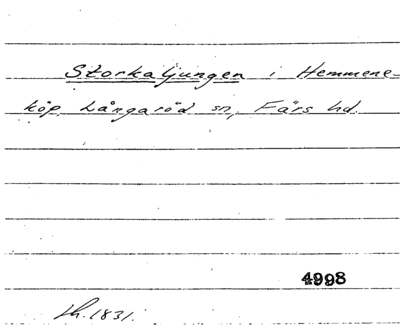 Storkaljungen i Hemmene-
köp, Långaröd sn, Färs hd.
4998
Lh. 1831.